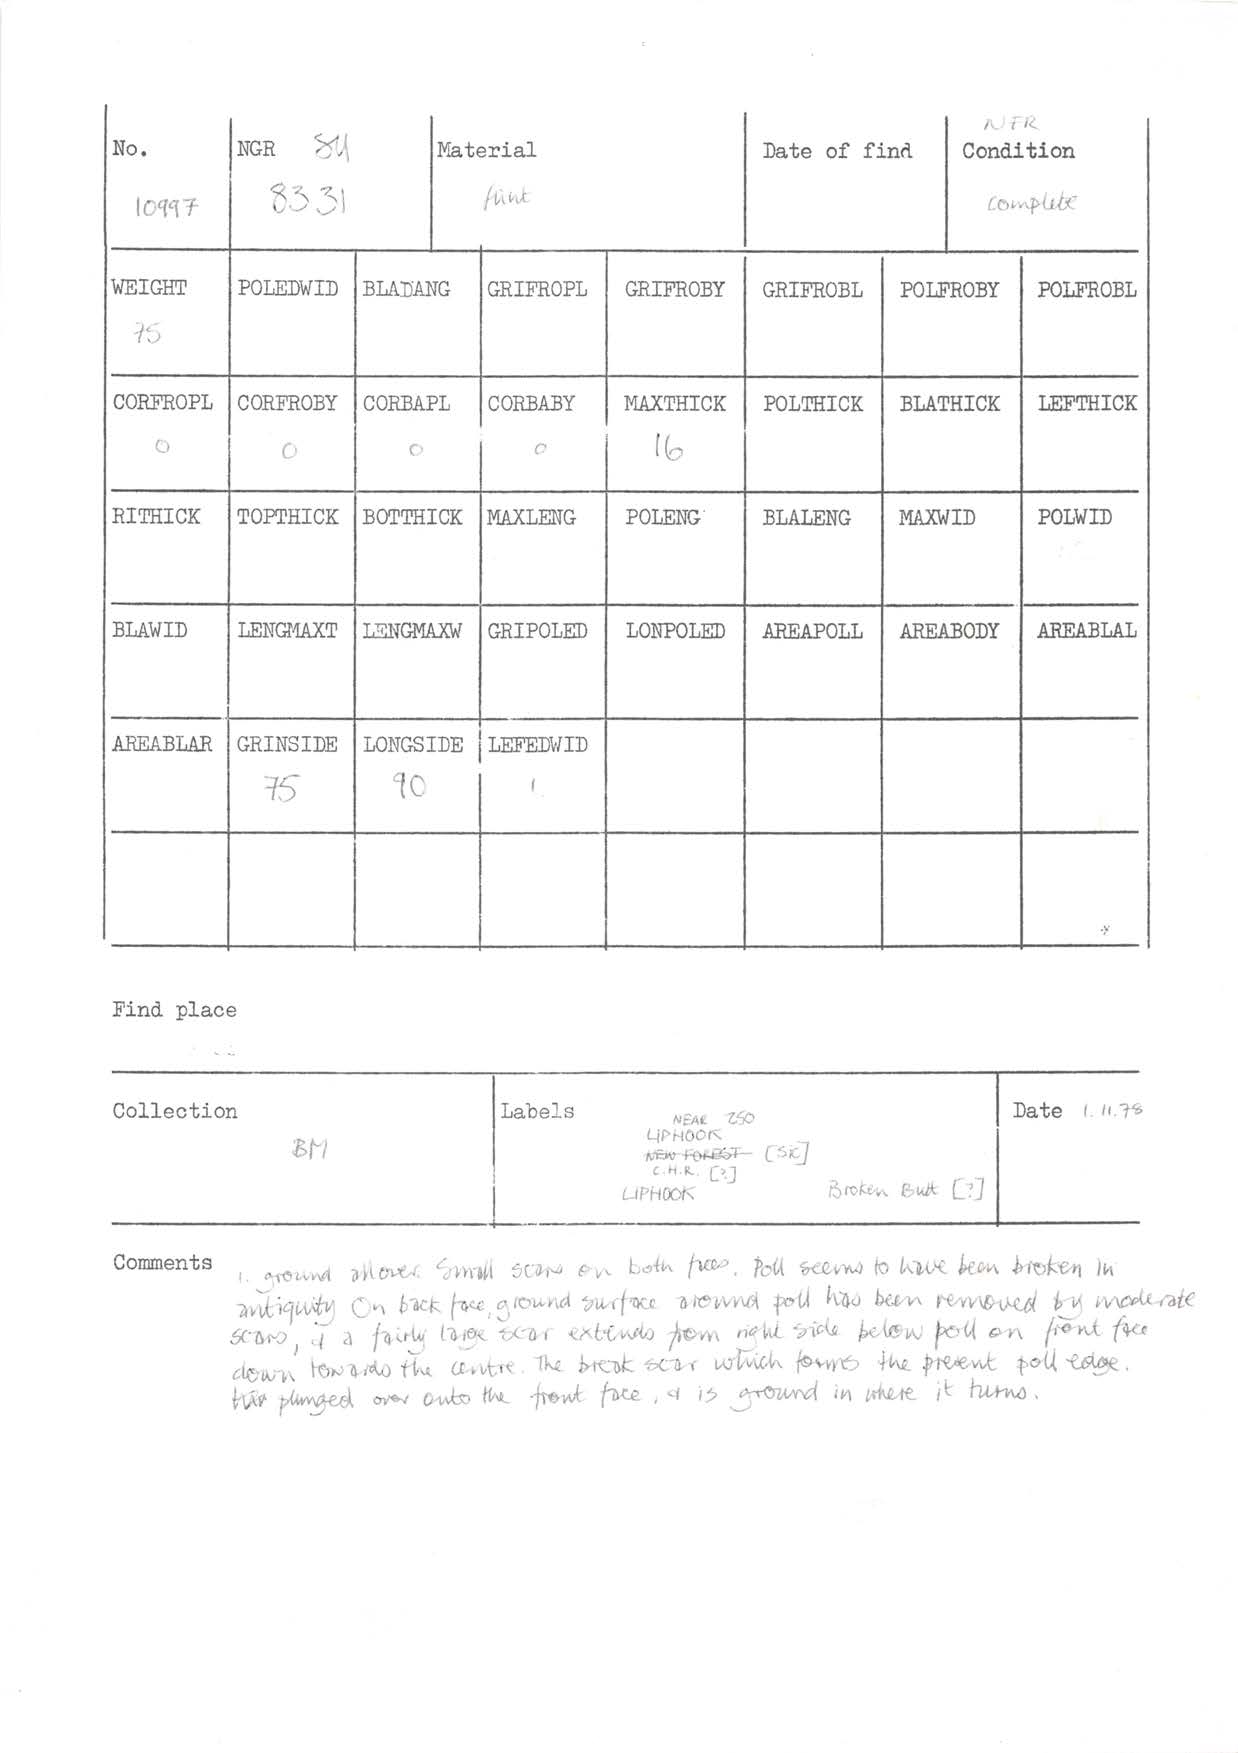 NFR
No. NGR SU Material Date of find Condition
10997 8331 flint complete
WEIGHT POLEDWID BLADANG GRIFROPL GRIFROBY GRIFROBL POLFROBY POLFROBL
75
CORFROPL CORFROBY CORBAPL CORBABY MAXTHICK POLTHICK BLATHICK LEFTHICK
0 0 0 0 16
RITHICK TOPTHICK BOTTHICK MAXLENG POLENG BLALENG MAXWID POLWID
BLAWID LENGMAXT LENGMAXW GRIPOLED LONPOLED AREAPOLL AREABODY AREABLAL
AREABLAR GRINSIDE LONGSIDE LEFEDWID
75 90 1
Find place
Collection Labels Date 1.11.78
BM
NEAR 250
LIPHOOK
NEW FOREST [SIC]
C.H.R. [?]
LIPHOOK Broken Butt [?]
Comments 1. ground all over. Small scars on both faces. Poll seems to have been broken in
antiquity On back face, ground surface around poll has been removed by moderate
scars, & a fairly large scar extends from right side below poll on front face
down towards the centre. The break scar which forms the present poll edge.
has plunged over onto the front face, & is ground in where it turns.